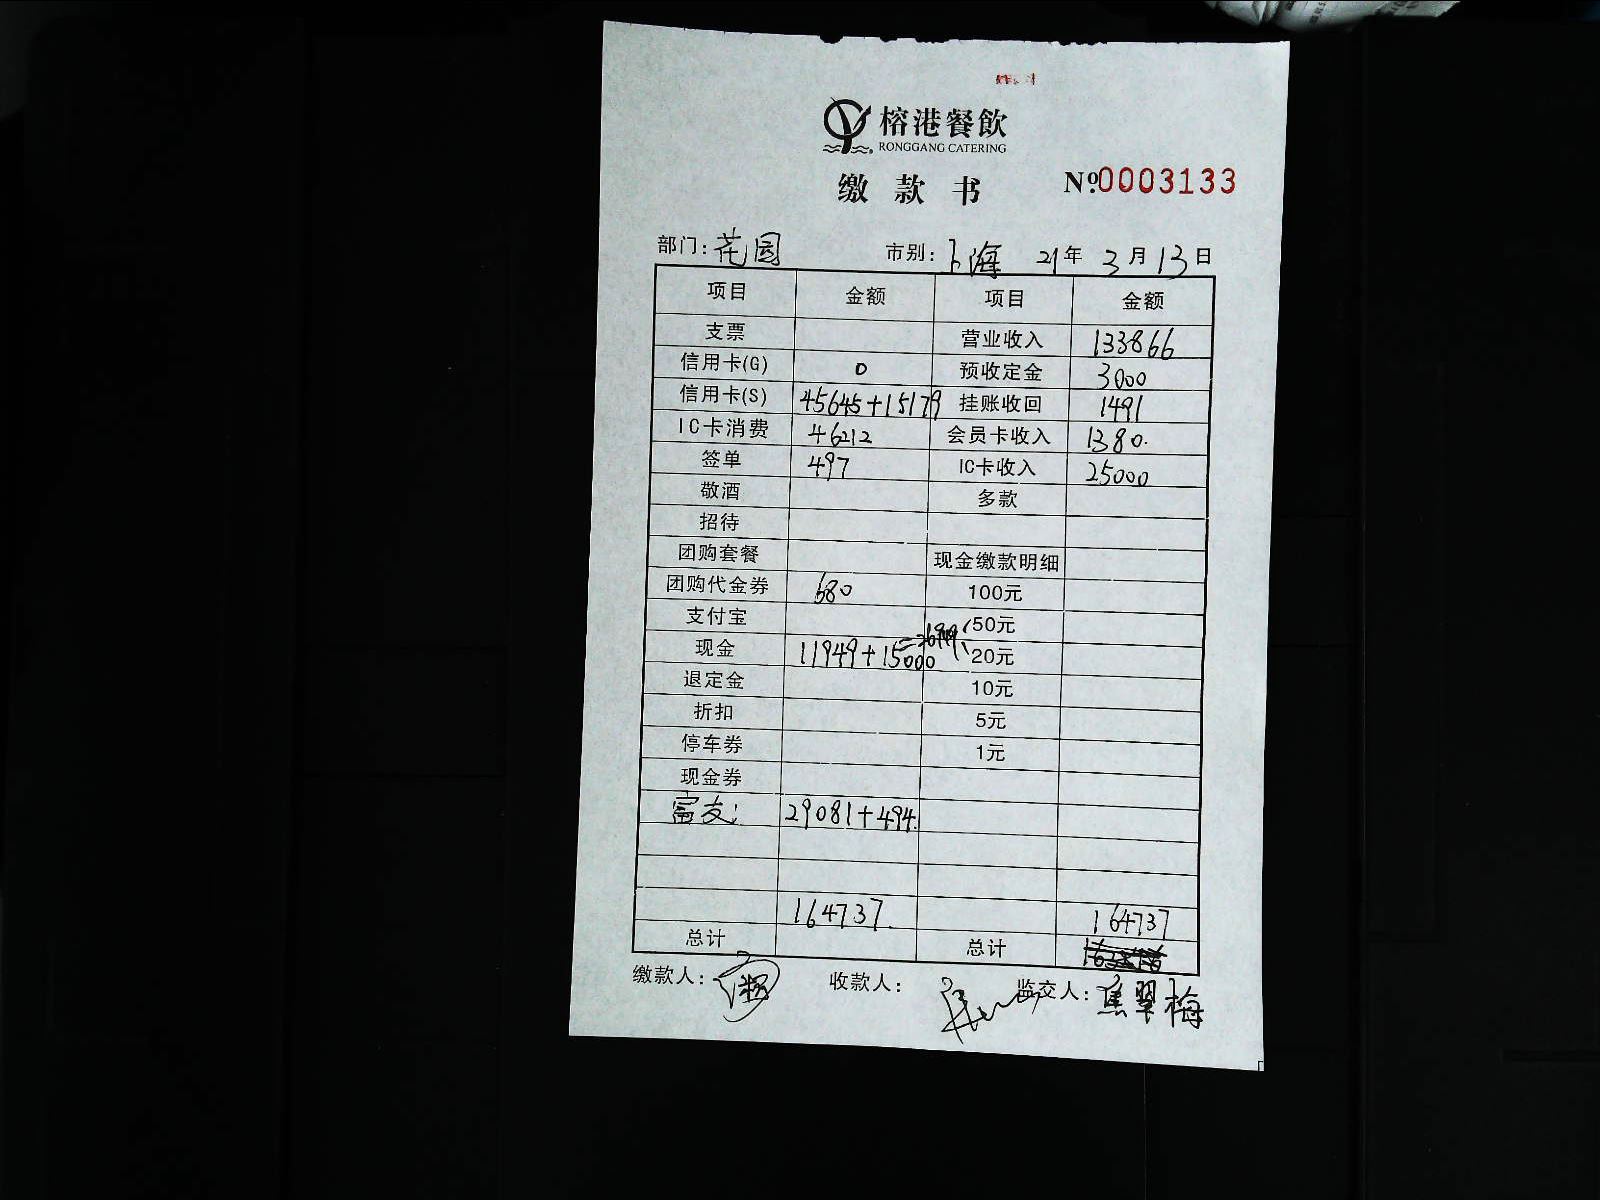 榕港餐飲
RONGGANG CATERING
缴款书 №0003133
部门: 花园 市别: 上海 21年3月13日
项目 金额 项目 金额
支票 营业收入 133866
信用卡(G) 0 预收定金 3000
信用卡(S) 45645+15179 挂账收回 1491
IC卡消费 46212 会员卡收入 1380.
签单 497 IC卡收入 25000
敬酒 多款
招待
团购套餐 现金缴款明细
团购代金券 680 100元
支付宝 50元
现金 11949+15000 20元
退定金 10元
折扣 5元
停车券 1元
现金券
富友: 29081+494.
164737. 164737
总计 总计
缴款人: 收款人: 监交人: 焦翠梅